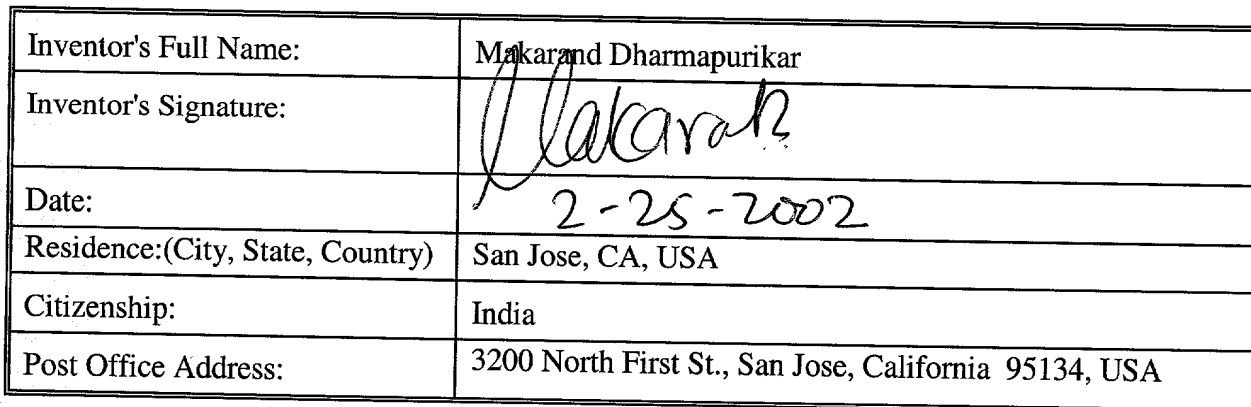 Inventor's Full Name: Makarand Dharmapurikar
Inventor's Signature: Makarand
Date: 2-25-2002
Residence:(City, State, Country) San Jose, CA, USA
Citizenship: India
Post Office Address: 3200 North First St., San Jose, California 95134, USA